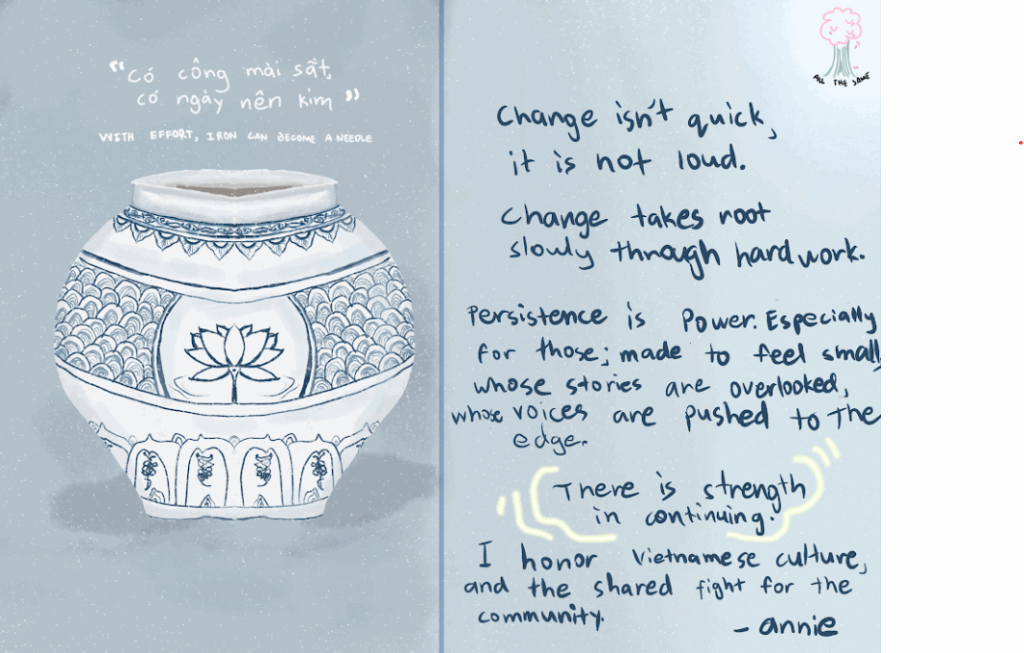 “Có công mài sắt,
có ngày nên kim”
WITH EFFORT, IRON CAN BECOME A NEEDLE
ALL THE SAME
Change isn't quick,
it is not loud.
Change takes root
slowly through hard work.
Persistence is Power. Especially
for those; made to feel small,
whose stories are overlooked,
whose voices are pushed to the
edge.
There is strength
in continuing.
I honor Vietnamese culture,
and the shared fight for the
community.
- annie